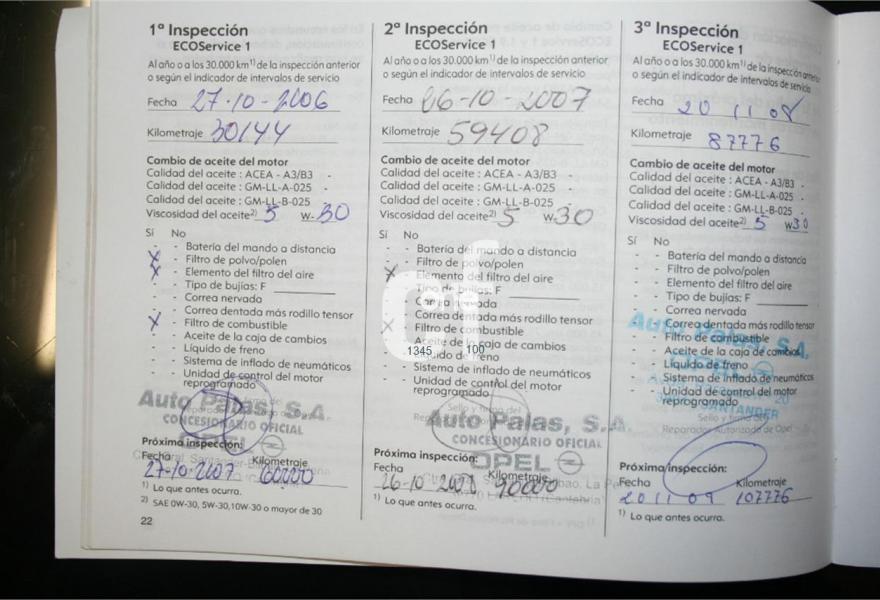 1ª Inspección
ECOService 1
Al año o a los 30.000 km1) de la inspección anterior
o según el indicador de intervalos de servicio
Fecha 27-10-2006
Kilometraje 30144
Cambio de aceite del motor
Calidad del aceite : ACEA - A3/B3 -
Calidad del aceite : GM-LL-A-025 -
Calidad del aceite : GM-LL-B-025
Viscosidad del aceite2) 5 W-30
Sí No
- - Batería del mando a distancia
X - Filtro de polvo/polen
X - Elemento del filtro del aire
- - Tipo de bujías: F
- - Correa nervada
- - Correa dentada más rodillo tensor
X - Filtro de combustible
- - Aceite de la caja de cambios
- - Líquido de freno
- - Sistema de inflado de neumáticos
- - Unidad de control del motor
reprogramado
Auto Palas, S.A.
CONCESIONARIO OFICIAL
Próxima inspección:
Fecha Kilometraje
27-10-2007 60000
1) Lo que antes ocurra.
2) SAE 0W-30, 5W-30,10W-30 o mayor de 30
22
2ª Inspección
ECOService 1
Al año o a los 30.000 km1) de la inspección anterior
o según el indicador de intervalos de servicio
Fecha 26-10-2007
Kilometraje 59408
Cambio de aceite del motor
Calidad del aceite : ACEA - A3/B3 -
Calidad del aceite : GM-LL-A-025 -
Calidad del aceite : GM-LL-B-025 -
Viscosidad del aceite2) 5 W-30
Sí No
- - Batería del mando a distancia
- - Filtro de polvo/polen
X - Elemento del filtro del aire
- - Tipo de bujías: F
- - Correa nervada
- - Correa dentada más rodillo tensor
X - Filtro de combustible
- - Aceite de la caja de cambios
1345 100
Líquido de freno
- - Sistema de inflado de neumáticos
- - Unidad de control del motor
reprogramado
Sello y firma del
Auto Palas, S.A.
CONCESIONARIO OFICIAL
OPEL
Próxima inspección:
Fecha Kilometraje
26-10 90000
1) Lo que antes ocurra.
3ª Inspección
ECOService 1
Al año o a los 30.000 km1) de la inspección anterior
o según el indicador de intervalos de servicio
Fecha 20 11 08
Kilometraje 87776
Cambio de aceite del motor
Calidad del aceite : ACEA - A3/B3 -
Calidad del aceite : GM-LL-A-025 -
Calidad del aceite : GM-LL-B-025 -
Viscosidad del aceite2) 5 W30
Sí No
- - Batería del mando a distancia
- - Filtro de polvo/polen
- - Elemento del filtro del aire
- - Tipo de bujías: F
- - Correa nervada
- - Correa dentada más rodillo tensor
Auto Palas, S.A.
- - Filtro de combustible
- - Aceite de la caja de cambios
- - Líquido de freno
- - Sistema de inflado de neumáticos
- - Unidad de control del motor
reprogramado
SANTANDER
Sello y firma del
Reparador Autorizado de Opel
Próxima inspección:
Fecha Kilometraje
20 11 09 107776
1) Lo que antes ocurra.